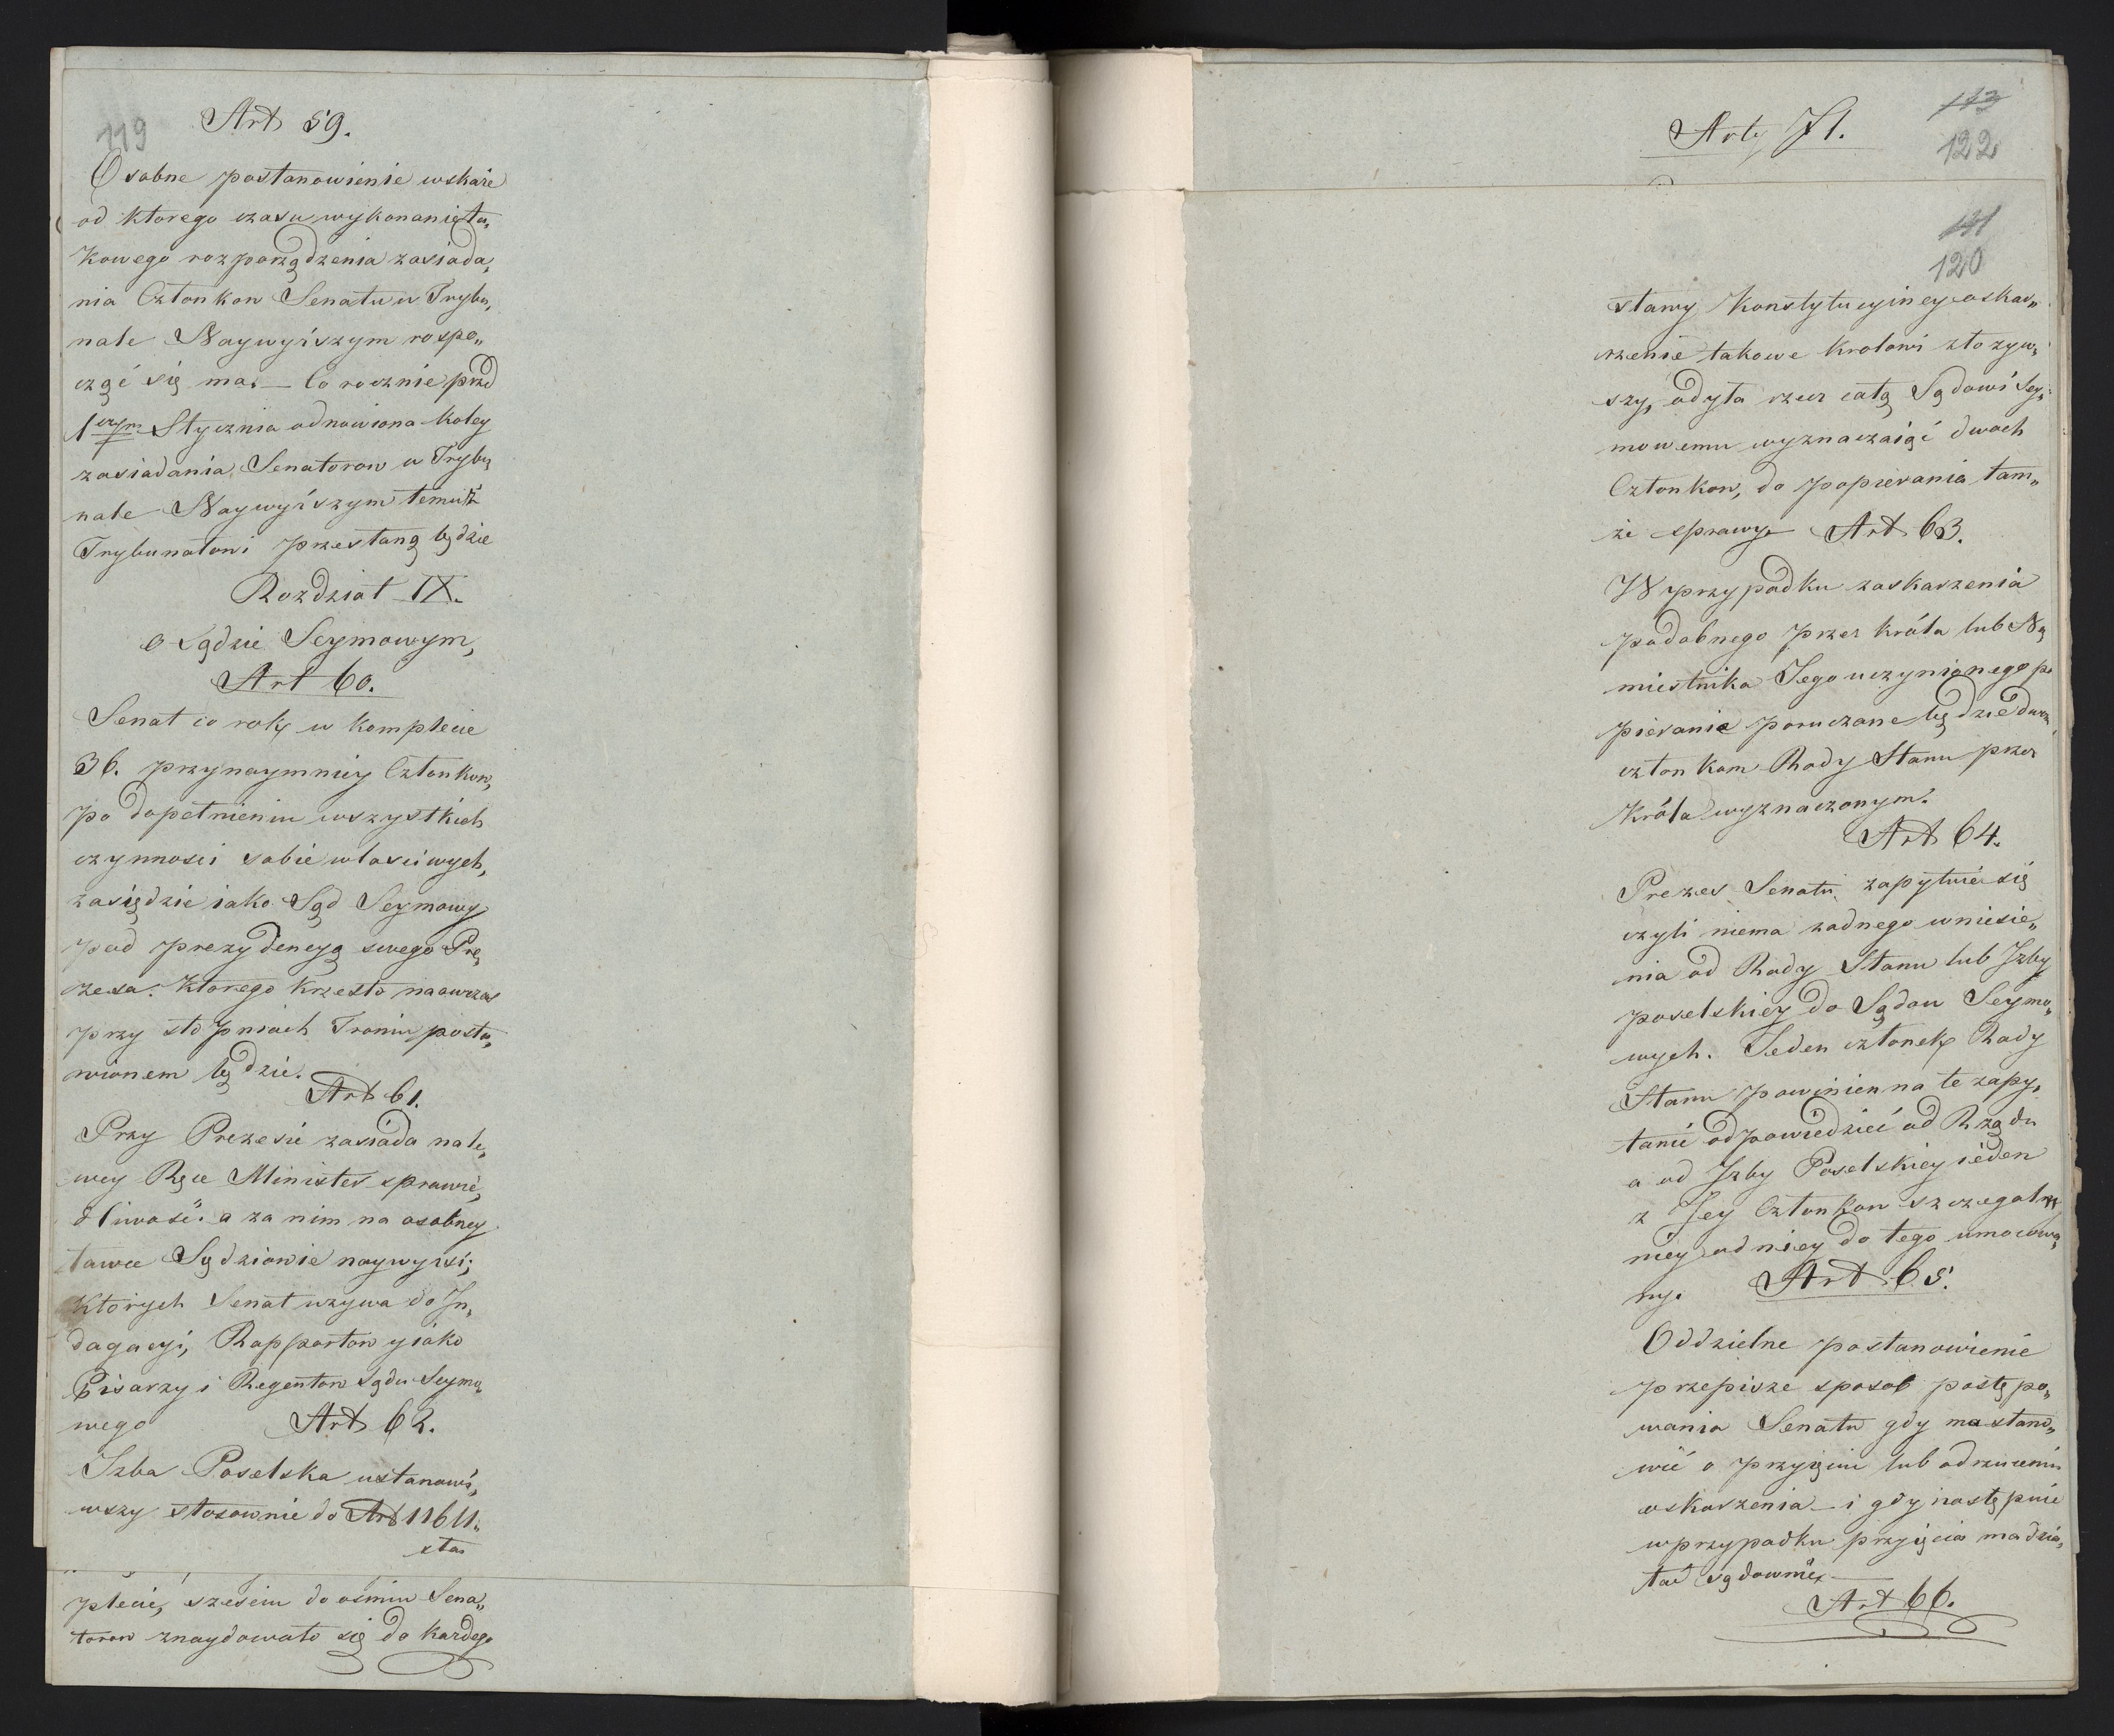 119
Art 59.
Osobne postanowienie wskaże
od ktorego czasu wykonanie ta„
kowego rozporządzenia zasiada„
nia Członkow Senatu w Trybu„
nale Naywyższym rospo„
cząć się ma. — Co rocznie przed
1wszym Stycznia odnowiona koley
zasiadania Senatorow w Trybu„
nale Naywyższym temuż
Trybunałowi przesłaną będzie
Rozdział IX.
o Sądzie Seymowym,
Art 60.
Senat co rok, w komplecie
36. przynaymniey Członkow,
po dopełnieniu wszystkich
czynnosci sobie własciwych,
zasiędzie iako Sąd Seymowy
pod prezydencyą swego Pre„
zesa. Ktorego krzesło naowczas
przy stopniach Tronu posta„
wionem będzie.
Art 61.
Przy Prezesie zasiada na le„
wey Ręce Minister sprawie„
dliwości. a za nim na osobney
ławce Sędziowie naywyżsi;
Ktorych Senat wzywa do In„
dagacyi, Rapportow y iako
Pisarzy i Regentow Sądu Seymo„
wego
Art 62.
Izba Poselska ustanowi„
wszy stosownie do Art 116 U„
sta
plecie, sześciu do ośmiu Sena„
torow znaydowało się do każdego
Arty 71.
113
122
120
stawy Konstytucyiney oskar„
rzenie takowe Krolowi złożyw„
szy, odyła rzecz całą Sądowi Sey„
mowemu wyznaczaiąć dwoch
Członkow, do popierania tam„
że sprawy.
Art 63.
W przypadku zaskarzenia
podobnego przez Króla lub Na
miestnika Jego uczynionego po
pieranie poruczone będzie dwom
członkom Rady Stanu przez
Króla wyznaczonym.
Art 64.
Prezes Senatu zapytuie się
czyli niema żadnego wniesie„
nia od Rady Stanu lub Izby
poselskiey do Sądow Seymo„
wych. Jeden członek Rady
Stanu powinien na te zapy„
tanie odpowiedzieć od Rządu
a od Izby Poselskiey ieden
z Jey Członkow szczegol
niey od niey do tego umocowa„
ny.
Art 65.
Oddzielne postanowienie
przepisze sposob postępo„
wania Senatu gdy ma stano„
wić o przyięciu lub odrzuceniu
oskarzenia — i gdy następnie
w przypadku przyięcia ma dzia„
łać sądownie. —
Art 66.